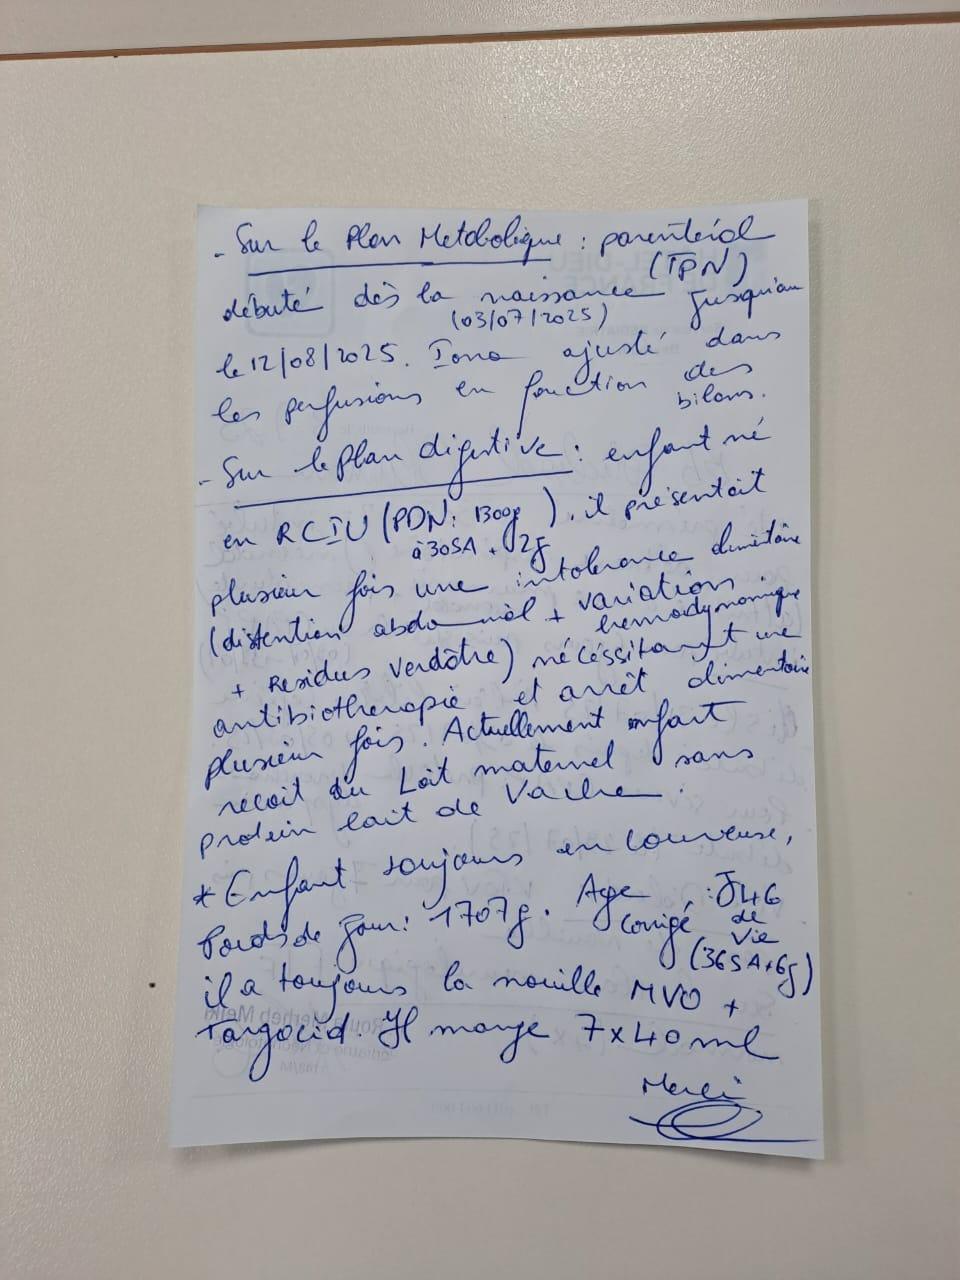 - Sur le Plan Metabolique : parentéral
(TPN)
débuté dès la naissance jusqu'au
(03/07/2025)
le 12/08/2025. Iono ajusté dans
les perfusions en fonction des
bilans.
- Sur le Plan digestive : enfant né
en RCIU (PDN: 1300g ), il présentait
à 30SA + 2j
plusieur fois une intolerance alimentaire
(distention abdominal + variation
hemodynamique
+ Residus verdâtre) nécéssitant une
antibiotherapie et arrêt alimentaire
plusieur fois. Actuellement enfant
recoit du Lait maternel sans
protein lait de Vache.
* Enfant toujours en couveuse,
Poids de jour: 1707g. Age : J46
corrigé de
Vie
(36SA+6j)
il a toujours la nouille MVO +
Targocid. Il mange 7x40 ml
Merci